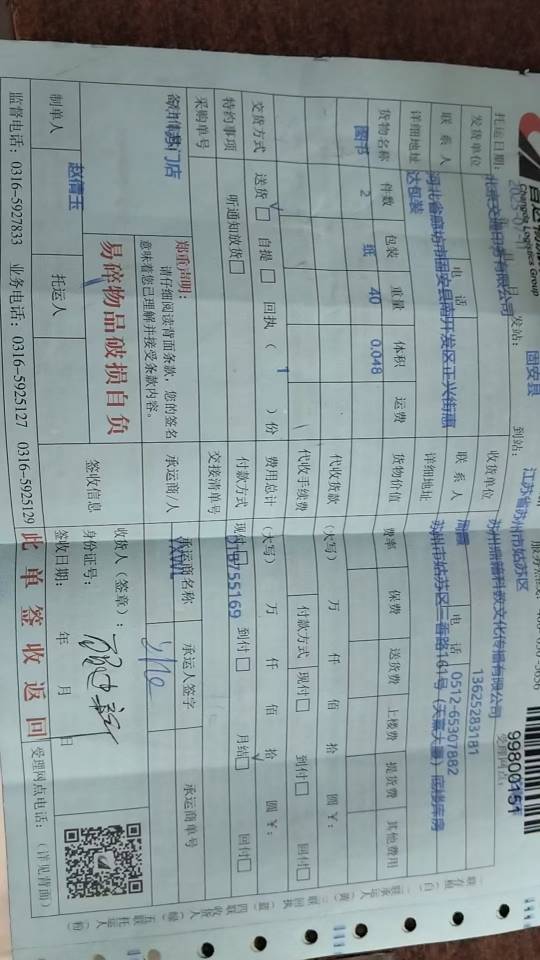 Changda Logistics Group
99800151
托运日期：
发站：
固安县
到站：
江苏省苏州市姑苏区
受理网点：
发货单位
收货单位
联系人
电话
联系人
电话
13625283181
0512-65307882
详细地址
河北省廊坊市固安县南开发区正兴街惠
达包装
详细地址
苏州市姑苏区三香路161号（天嘉大厦）底楼库房
货物名称 件数 包装 重量 体积 运费 货物价值 费率 保费 送货费 上楼费 提货费 其他费用
图书 2 纸 40 0.048
代收货款 （大写） 万 仟 佰 拾 圆￥：
代收手续费 付款方式 现付□ 到付□ 回付□
交货方式 送货□ 自提□ 回执（ 1 ）份 费用总计 （大写） 万 仟 佰 拾 圆￥：
特约事项 听通知放货□ 付款方式 现付 到付□ 月结□ 回付□
采购单号
交接清单号
318755169
门店
郑重声明：
请仔细阅读背面条款，您的签名
意味着您已理解并接受条款内容。
易碎物品破损自负
承运商/人
承运商名称
承运人签字
承运商单号
签收信息
收货人（签章）：
身份证号：
签收日期： 年 月 日
制单人 赵倩玉 托运人
监督电话：0316-5927833 业务电话：0316-5925127 0316-5925129 此单签收返回 受理网点电话：（详见背面）